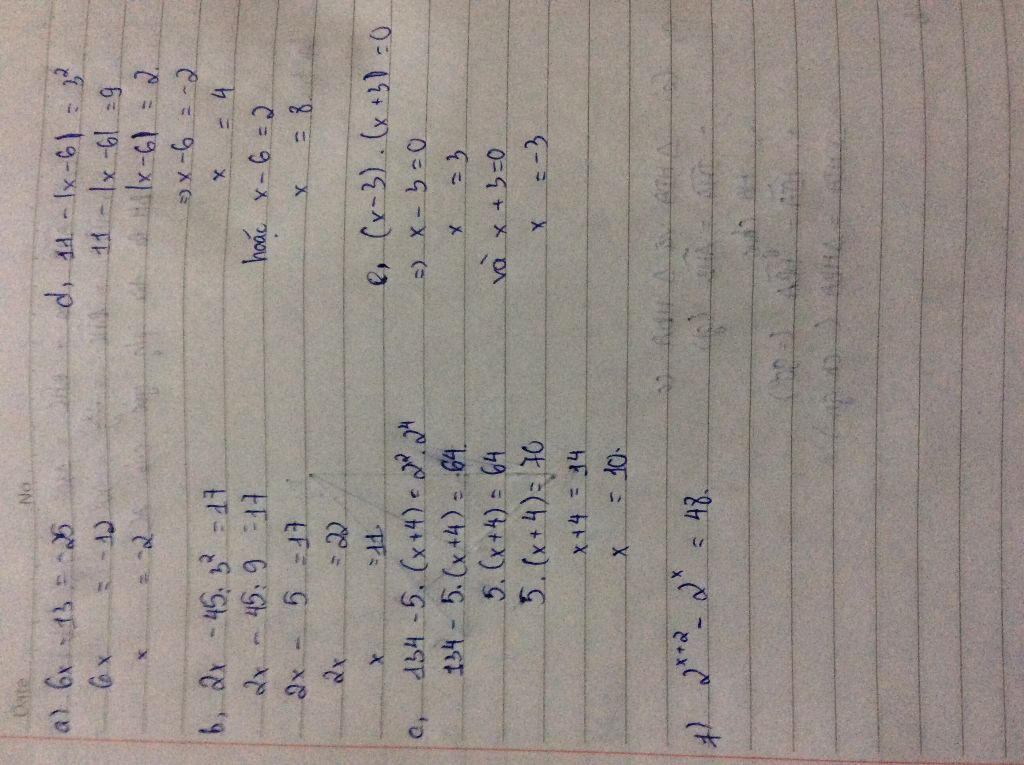 Date No
a) 6x - 13 = -25
6x = -12
x = -2
b, 2x - 45:3² = 17
2x - 45:9 = 17
2x - 5 = 17
2x = 22
x = 11
c, 134 - 5.(x+4) = 2².2⁴
134 - 5.(x+4) = 64.
5.(x+4) = 64
5.(x+4) = 70
x+4 = 14
x = 10.
f) 2ˣ⁺² - 2ˣ = 48.
d, 11 - |x-6| = 3²
11 - |x-6| = 9
|x-6| = 2.
=> x-6 = -2
x = 4
hoặc x-6 = 2
x = 8.
e, (x-3).(x+3) = 0
=> x - 3 = 0
x = 3
và x + 3 = 0
x = -3